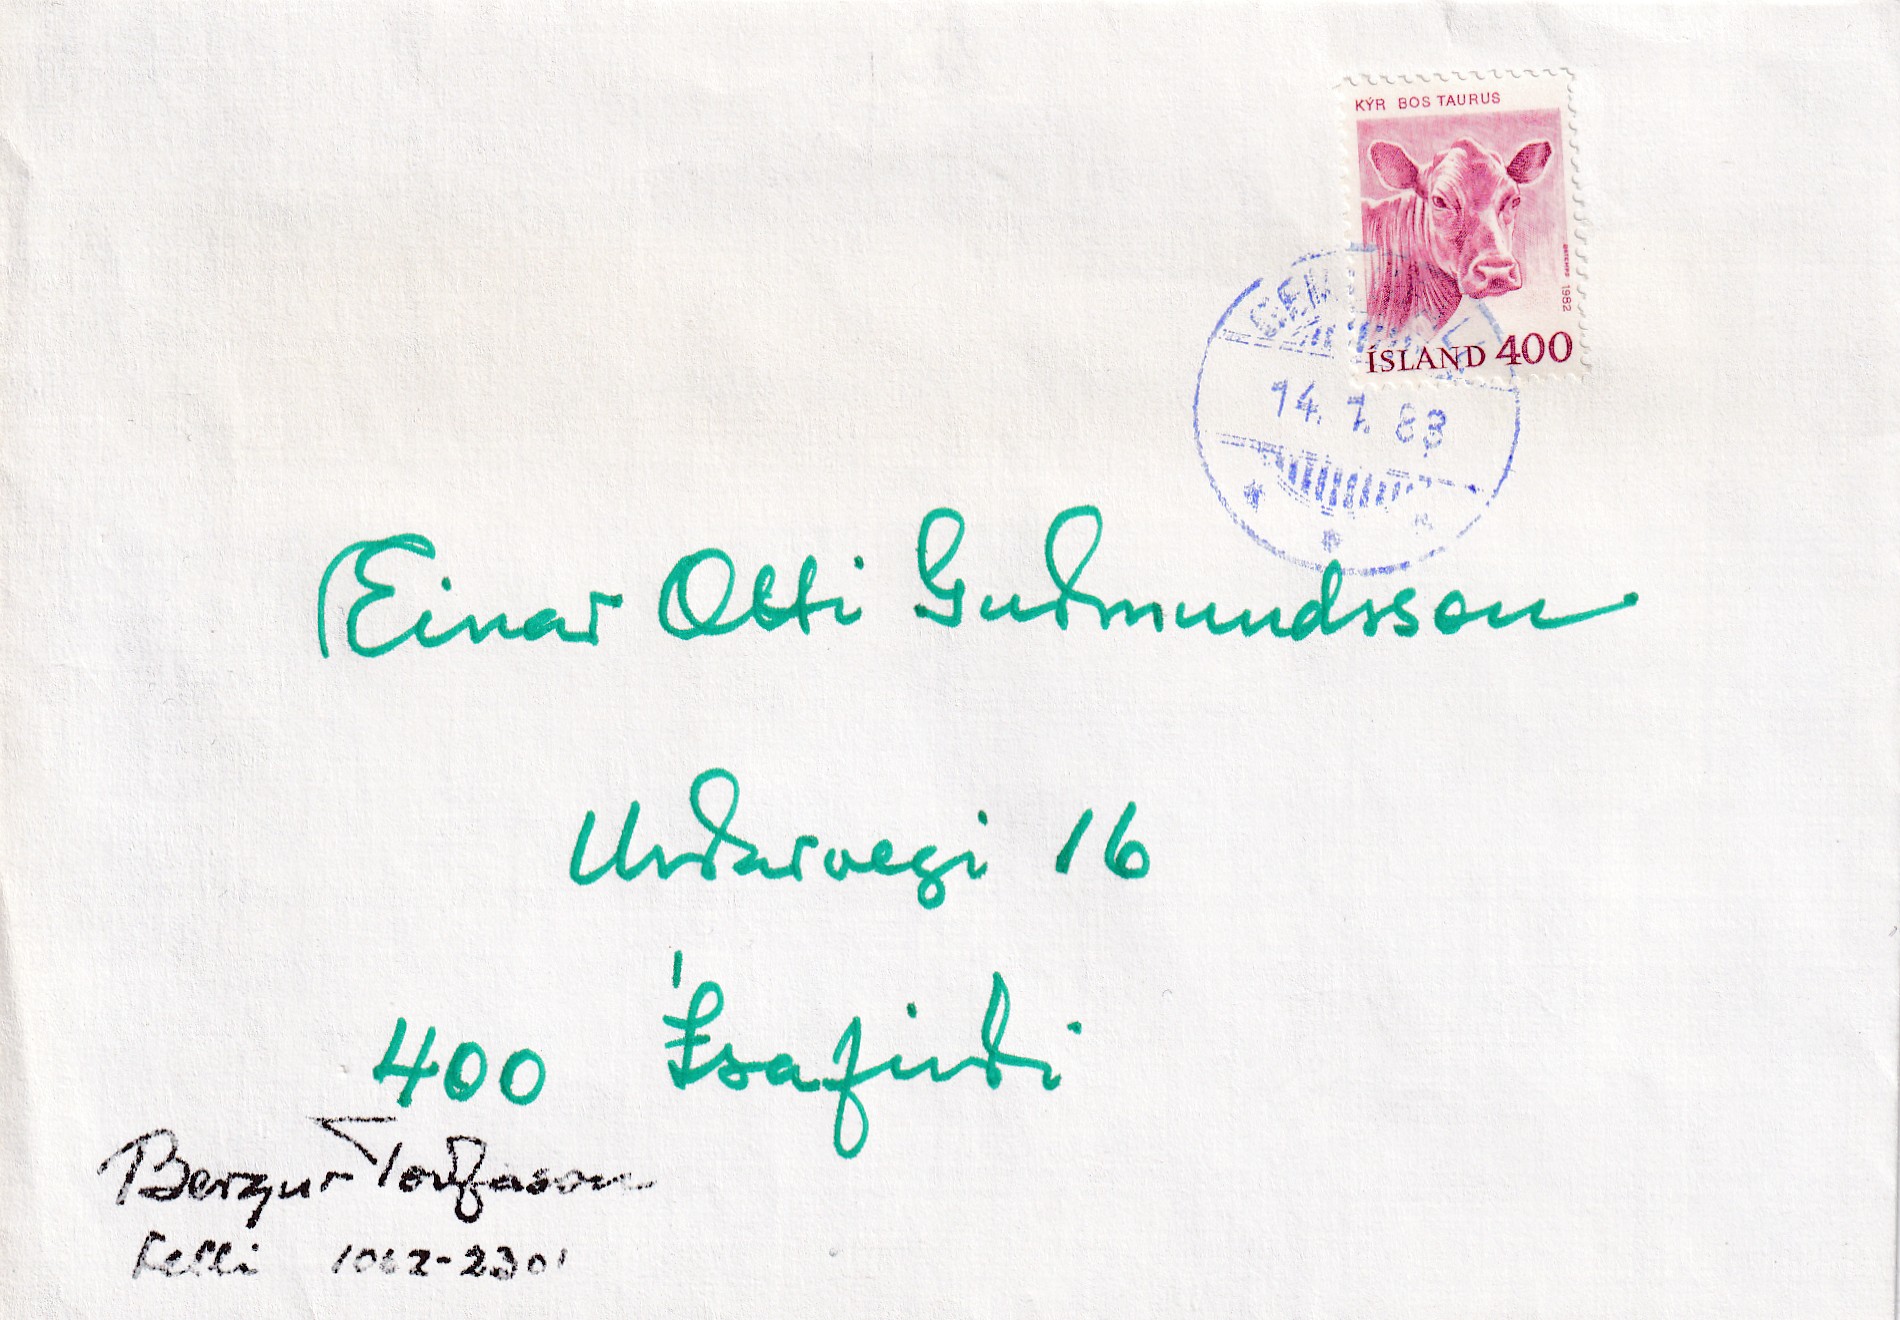 KÝR BOS TAURUS
1982
ÍSLAND 400
14. 7. 83
Einar Otti Guðmundsson
Urðarvegi 16
400 Ísafirði
Bergur Torfason
Felli 1062-2301